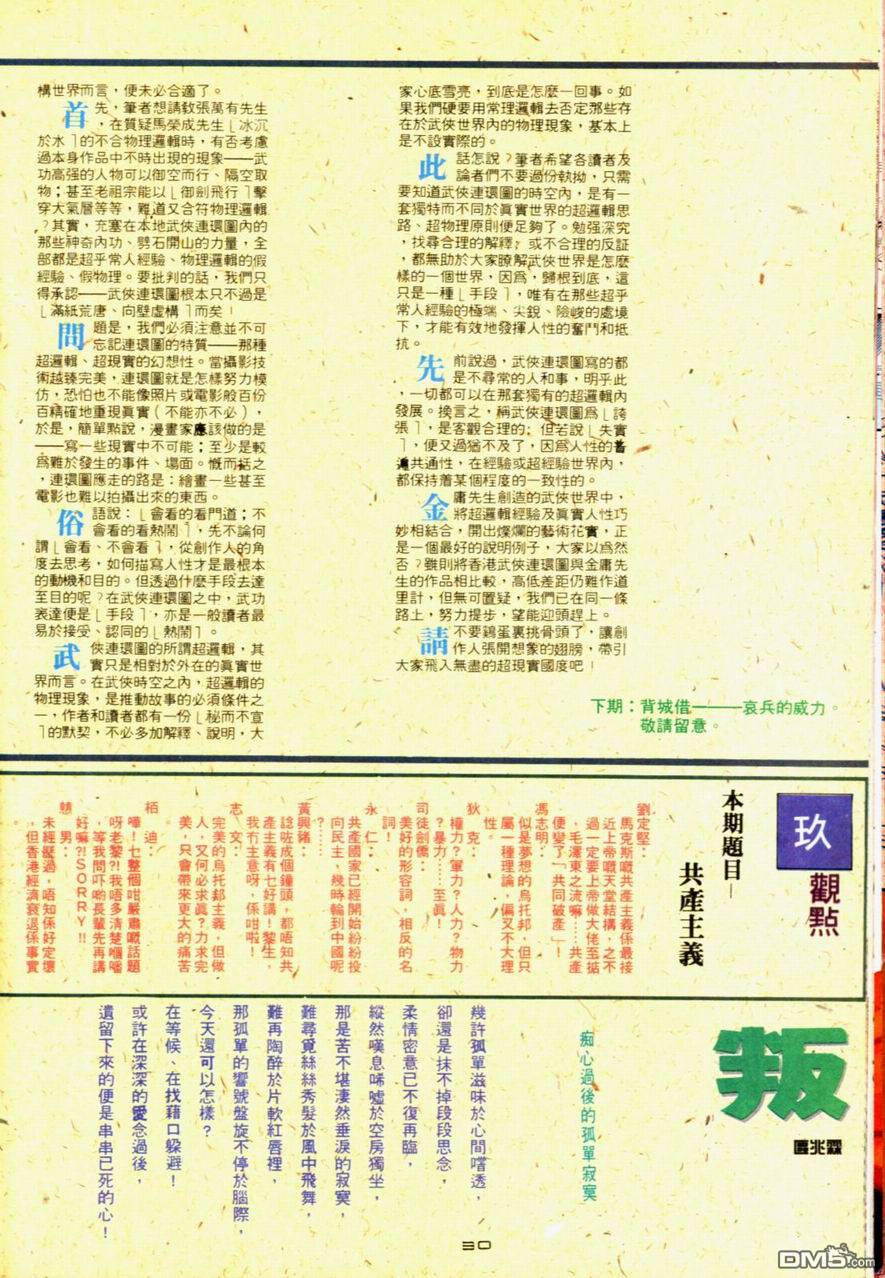 構世界而言，便未必合適了。
首先，筆者想請敎張萬有先生
，在質疑馬榮成先生⎣冰沉
於水⎤的不合物理邏輯時，有否考慮
過本身作品中不時出現的現象——武
功高强的人物可以御空而行、隔空取
物；甚至老祖宗能以⎣御劍飛行⎤擊
穿大氣層等等，難道又合符物理邏輯
？其實，充塞在本地武俠連環圖內的
那些神奇內功、劈石開山的力量，全
部都是超乎常人經驗、物理邏輯的假
經驗、假物理。要批判的話，我們只
得承認——武俠連環圖根本只不過是
⎣滿紙荒唐、向壁虛構⎤而矣！
問題是，我們必須注意並不可
忘記連環圖的特質——那種
超邏輯、超現實的幻想性。當攝影技
術越臻完美，連環圖就是怎樣努力模
仿，恐怕也不能像照片或電影般百份
百精確地重現真實（不能亦不必），
於是，簡單點說，漫畫家應該做的是
——寫一些現實中不可能；至少是較
爲難於發生的事件、場面。慨而括之
，連環圖應走的路是：繪畫一些甚至
電影也難以拍攝出來的東西。
俗語說：⎣會看的看門道；不
會看的看熱鬧⎤，先不論何
謂⎣會看、不會看⎤，從創作人的角
度去思考，如何描寫人性才是最根本
的動機和目的。但透過什麽手段去達
至目的呢？在武俠連環圖之中，武功
表達便是⎣手段⎤，亦是一般讀者最
易於接受、認同的⎣熱鬧⎤。
武俠連環圖的所謂超邏輯，其
實只是相對於外在的眞實世
界而言。在武俠時空之內，超邏輯的
物理現象，是推動故事的必須條件之
一，作者和讀者都有一份⎣秘而不宣
⎤的默契，不必多加解釋、說明，大
家心底雪亮，到底是怎麼一回事。如
果我們硬要用常理邏輯去否定那些存
在於武俠世界內的物理現象，基本上
是不設實際的。
此話怎說？筆者希望各讀者及
論者們不要過份執拗，只需
要知道武俠連環圖的時空內，是有一
套獨特而不同於眞實世界的超邏輯思
路、超物理原則便足夠了。勉强深究
，找尋合理的解釋；或不合理的反証
，都無助於大家瞭解武俠世界是怎麼
樣的一個世界，因爲，歸根到底，這
只是一種⎣手段⎤，唯有在那些超乎
常人經驗的極端、尖銳、險峻的處境
下，才能有效地發揮人性的奮鬥和抵
抗。
先前說過，武俠連環圖寫的都
是不尋常的人和事，明乎此
，一切都可以在那套獨有的超邏輯內
發展。換言之，稱武俠連環圖爲⎣誇
張⎤，是客觀合理的；但若說⎣失實
⎤，便又過猶不及了，因爲人性的舊
共通性，在經驗或超經驗世界內，
都保持着某個程度的一致性的。
金庸先生創造的武俠世界中，
將超邏輯經驗及眞實人性巧
妙相結合，開出燦爛的藝術花實，正
是一個最好的說明例子，大家以爲然
否？雖則將香港武俠連環圖與金庸先
生的作品相比較，高低差距仍難作道
里計，但無可置疑，我們已在同一條
路上，努力提步，望能迎頭趕上。
請不要鷄蛋裏挑骨頭了，讓創
作人張開想象的翅膀，帶引
大家飛入無盡的超現實國度吧！
下期：背城借一——哀兵的威力。
敬請留意。
玖觀點
本期題目—
共產主義
劉定堅：
馬克斯嘅共產主義係最接
近上帝嘅天堂結構，之不
過一定要上帝做大佬至掂
，毛澤東之流嘛……共產
便變了「共同破產」！
馮志明：
似是夢想的烏托邦，但只
屬一種理論，偏又不大理
性。
狄克：
權力？軍力？人力？物力
？暴力……至眞！
司徒劍僑：
美好的形容詞，相反的名
詞！
永仁：
共產國家已經開始紛紛投
向民主，幾時輪到中國呢
？……
黃興鍩：
諗咗成個鐘頭，都唔知共
產主義有乜好講！黎生，
我冇主意呀，係咁啦！
志文：
完美的烏托邦主義，但做
人，又何必求眞？力求完
美，只會帶來更大的痛苦
。
栢迪：
嘩！乜整個咁嚴肅嘅話題
呀老黎？！我唔多清楚嗰
，等我問吓啲長輩先再講
好嘛？！SORRY！！
慧男：
未經驗過，唔知係好定壞
，但香港經濟衰退係事實
。
叛
區兆霖
痴心過後的孤單寂寞
幾許孤單滋味於心間嚐透，
卻還是抹不掉段段思念，
柔情密意已不復再臨，
縱然嘆息唏噓於空房獨坐，
那是苦不堪淒然垂淚的寂寞，
難尋覓絲絲秀髮於風中飛舞，
難再陶醉於片軟紅唇裡，
那孤單的響號盤旋不停於腦際，
今天還可以怎樣？
在等候、在找藉口躲避！
或許在深深的愛念過後，
遺留下來的便是串串已死的心！
30
DM5.com